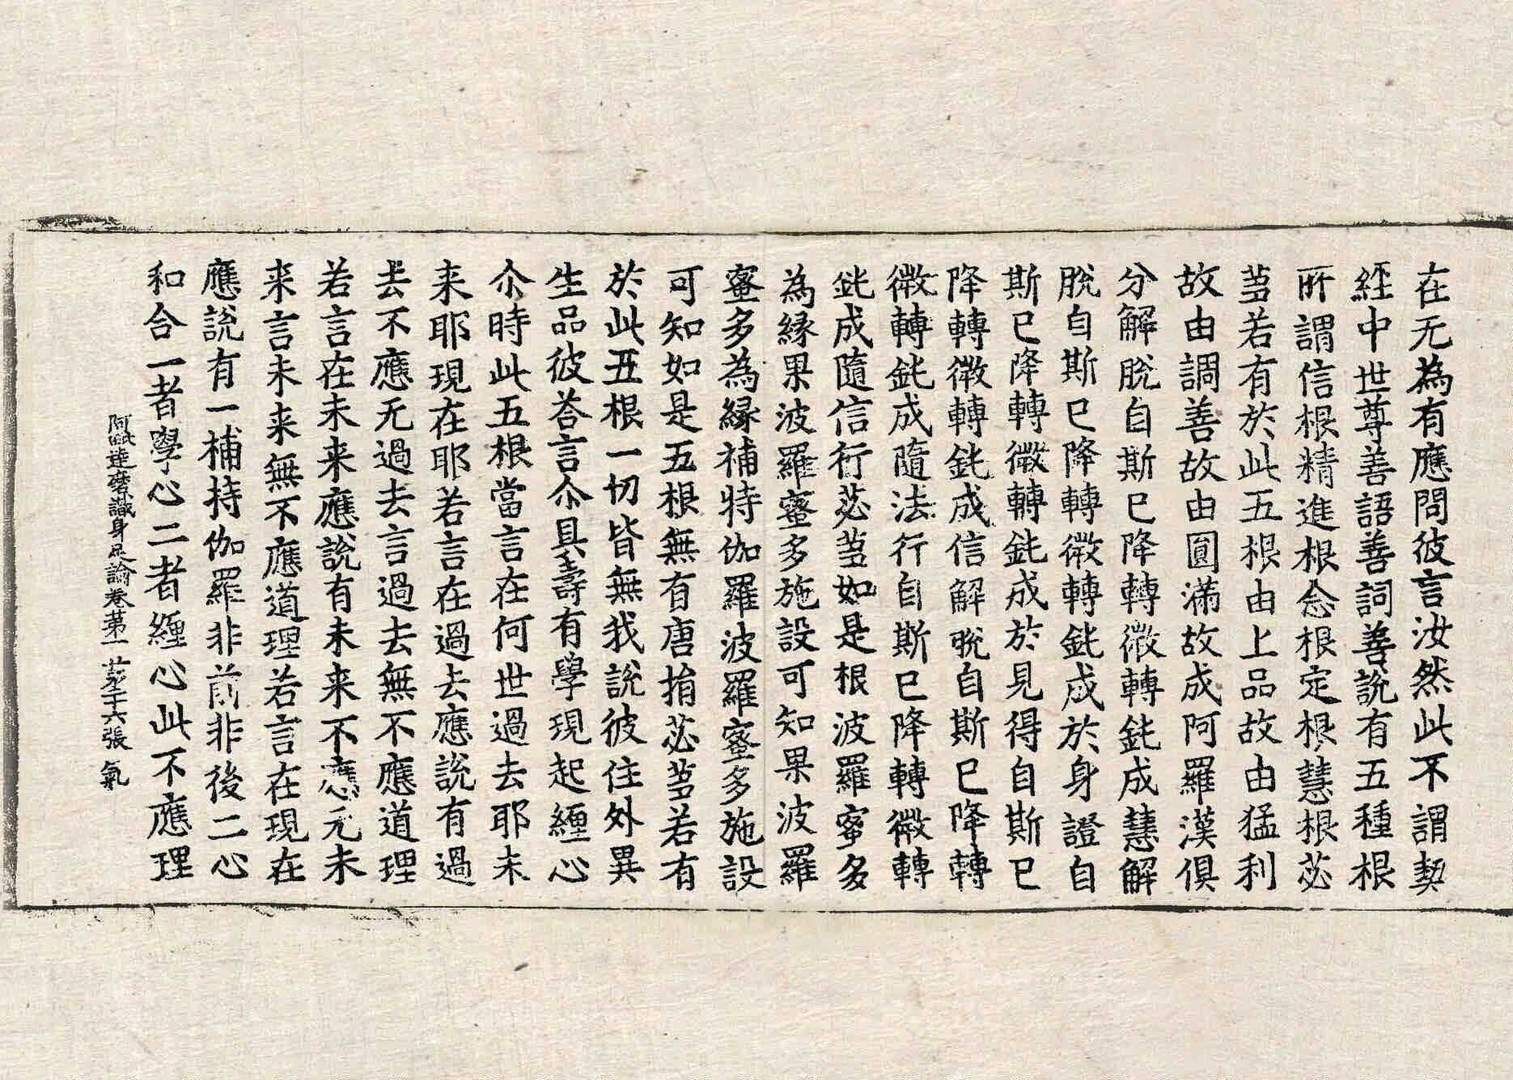 在无為有應問彼言汝然此不謂契
經中世尊善語善詞善說有五種根
所謂信根精進根念根定根慧根苾
芻若有於此五根由上品故由猛利
故由調善故由圓滿故成阿羅漢俱
分解脫自斯已降轉微轉鈍成慧解
脫自斯已降轉微轉鈍成於身證自
斯已降轉微轉鈍成於見得自斯已
降轉微轉鈍成信解脫自斯已降轉
微轉鈍成隨法行自斯已降轉微轉
鈍成隨信行苾芻如是根波羅蜜多
為緣果波羅蜜多施設可知果波羅
蜜多為緣補特伽羅波羅蜜多施設
可知如是五根無有唐捐苾芻若有
於此五根一切皆無我說彼住外異
生品彼荅言尒具壽有學現起纏心
尒時此五根當言在何世過去耶未
来耶現在耶若言在過去應說有過
去不應无過去言過去無不應道理
若言在未来應說有未来不應无未
来言未来無不應道理若言在現在
應說有一補特伽羅非前非後二心
和合一者學心二者纏心此不應理
阿毗達磨識身足論卷第一 第二十六張 氣